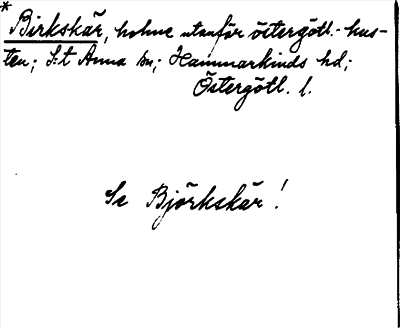 * Birkskär, holme utanför östergötl.-kus-
ten; S:t Anna sn; Hammarkinds hd;
Östergötl. l.
Se Björkskär!